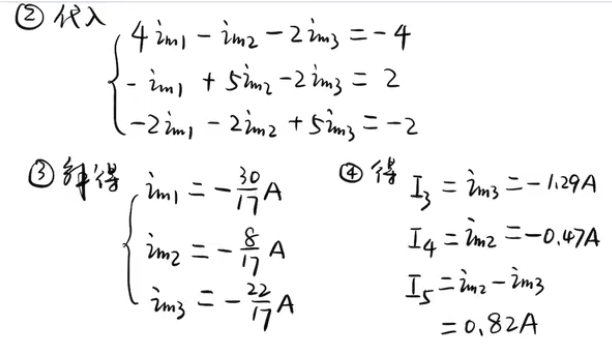 ② 代入
4im1 - im2 - 2im3 = -4
- im1 + 5im2 - 2im3 = 2
-2im1 - 2im2 + 5im3 = -2
③ 解得
im1 = -30/17 A
im2 = -8/17 A
im3 = -22/17 A
④ 得
I3 = im3 = -1.29A
I4 = im2 = -0.47A
I5 = im2 - im3
= 0.82A